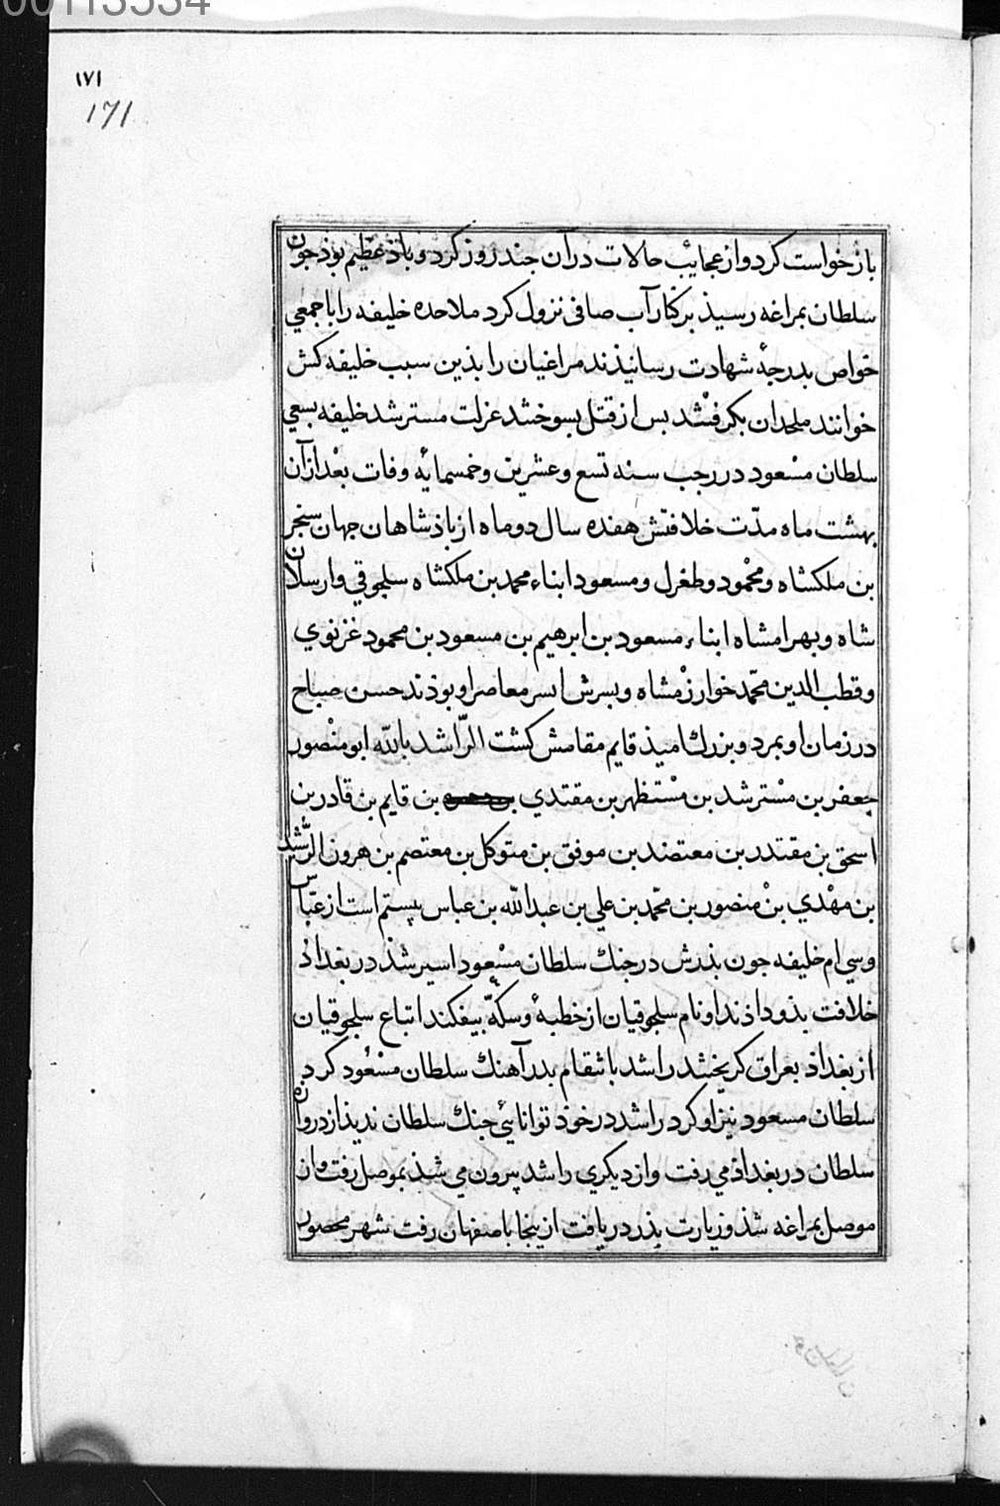 00113534
١٧١
171
باز خواست کرد و از عجائب حالات در آن جند روز کرد و باذ عظیم بوذ جون
سلطان بمراغه رسیذ بر کنار آب صافی نزول کرد ملاحده خلیفه را با جمعی
خواص بدرجهٔ شهادت رسانیذند مراغیان را بذین سبب خلیفه کش
خوانند ملحدان بکرفتند بس از قتل بسوختند عزلت مسترشد خلیفه بسعی
سلطان مسعود در رجب سنه تسع و عشرین و خمسمایه وفات بعد از آن
بهشت ماه مدّت خلافتش هفده سال دو ماه از باذشاهان جهان سنجر
بن ملکشاه و محمود و طغرل و مسعود ابناء محمد بن ملکشاه سلجوقی و ارسلان
شاه و بهرامشاه ابناء مسعود بن ابرهیم بن مسعود بن محمود غزنوی
و قطب الدین محمّد خوارزمشاه و بسرش اتسر معاصر او بوذند حسن صباح
در زمان او بمرد و بزرك امیذ قایم مقامش کشت الرّاشد بالله ابو منصور
جعفر بن مسترشد بن مستظهر بن مقتدی بن قایم بن قادر بن
اسحق بن مقتدر بن معتضد بن موفق بن متوکل بن معتصم بن هرون الرّشید
بن مهدی بن منصور بن محمّد بن علی بن عبدالله بن عباس بیستم است از عبّاس
و سی ام خلیفه جون بذرش در جنك سلطان مسعود اسیر شذ در بغداذ
خلافت بذو داذند او نام سلجوقیان از خطبهٔ و سکهّ بیفکند اتباع سلجوقیان
از بغداذ بعراق کریختند راشد بانتقام بدر آهنك سلطان مسعود کرد
سلطان مسعود نیز او کرد راشد در خوذ توانایی جنك سلطان ندیذ از دروازه
سلطان در بغداذ می رفت و از دیکری راشد بیرون می شذ بموصل رفت و از
موصل بمراغه شذ و زیارت بذر دریافت از ینجا باصفهان رفت شهر محصور